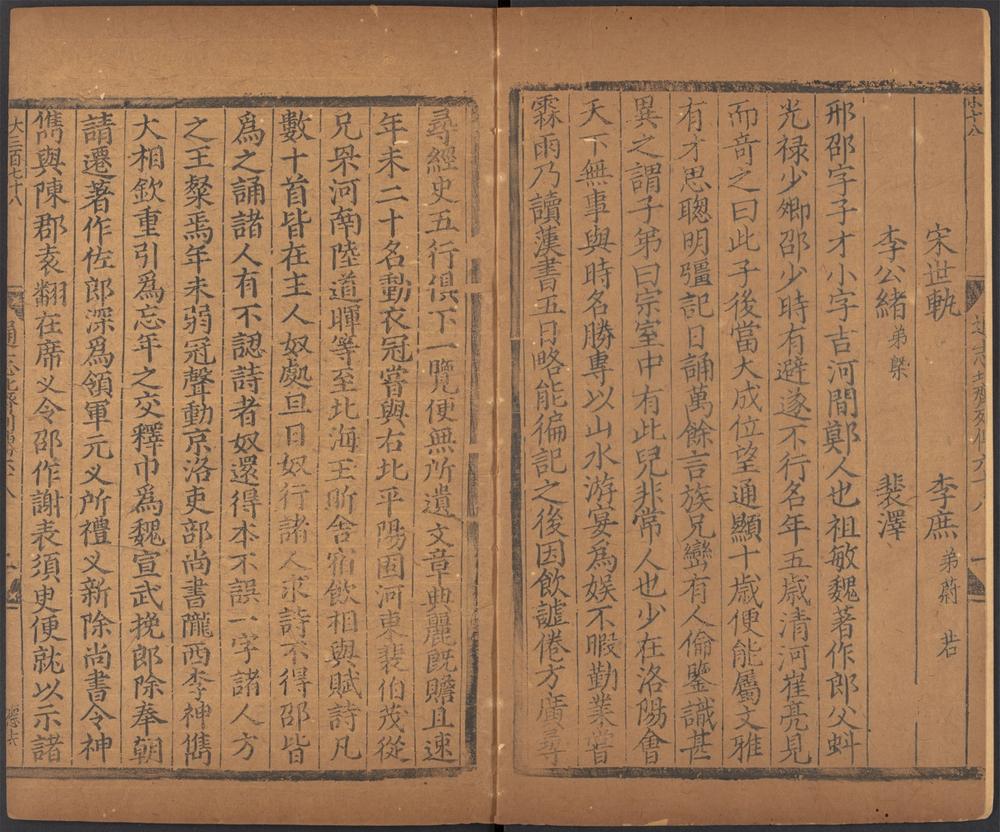 宋世軌　李庶 弟蔚 若
李公緒 弟槩　裴澤
邢邵字子才小字吉河間鄚人也祖敏魏著作郎父虯
光祿少卿邵少時有避遂不行名年五歲清河崔亮見
而奇之曰此子後當大成位望通顯十歲便能屬文雅
有才思聰明彊記日誦萬餘言族兄巒有人倫鑒識甚
異之謂子弟曰宗室中有此兒非常人也少在洛陽會
天下無事與時名勝專以山水游宴為娛不暇勤業嘗
霖雨乃讀漢書五日略能徧記之後因飲謔倦方廣尋
尋經史五行俱下一覽便無所遺文章典麗旣贍且速
年未二十名動衣冠嘗與右北平陽固河東裴伯茂從
兄罘河南陸道暉等至北海王昕舍宿飲相與賦詩凡
數十首皆在主人奴處旦日奴行諸人求詩不得邵皆
爲之誦諸人有不認詩者奴還得本不誤一字諸人方
之王粲焉年未弱冠聲動京洛吏部尚書隴西李神儁
大相欽重引爲忘年之交釋巾爲魏宣武挽郎除奉朝
請遷著作佐郎深爲領軍元乂所禮乂新除尚書令神
儁與陳郡袁翻在席乂令邵作謝表須臾便就以示諸
大三百七十八